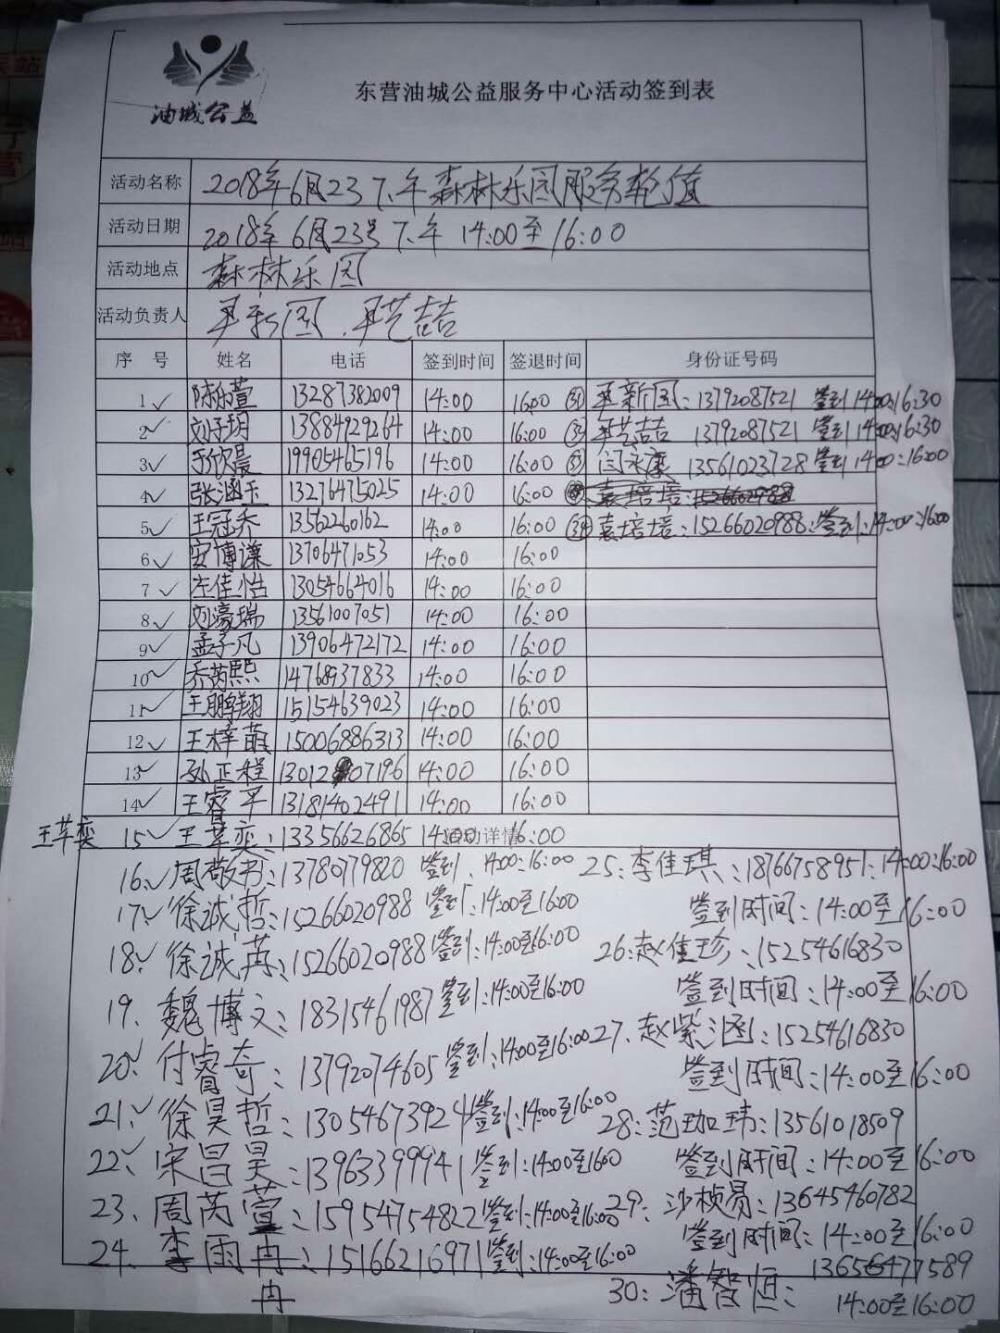 油城公益
东营油城公益服务中心活动签到表
活动名称 2018年6月23下午森林乐园服务轮值
活动日期 2018年6月23号下午 14:00至16:00
活动地点 森林乐园
活动负责人
序号 姓名 电话 签到时间 签退时间 身份证号码
1 陈乐萱 13287382009 14:00 16:00 新国:13792087521 签到14:00:16:30
2 刘子玥 13884929264 14:00 16:00 艺喆 13792087521 签到14:00:16:30
3 欣晨 19905465196 14:00 16:00 闫永康 13561023728 签到14:00:16:00
4 张涵玉 13276475025 14:00 16:00
5 王冠乔 13562260162 14:00 16:00 袁培培:15266020988:签到:14:00:16:00
6 安博谦 13706471053 14:00 16:00
7 左佳怡 13054664016 14:00 16:00
8 刘濠瑞 13561007051 14:00 16:00
9 孟子凡 13906472172 14:00 16:00
10 乔芮熙 14768937833 14:00 16:00
11 王鹏翔 15154639023 14:00 16:00
12 王梓萌 15006886313 14:00 16:00
13 孙正程 13012 07196 14:00 16:00
14 王睿平 13181402491 14:00 16:00
王苹奕 15 王苹奕:13356626865 14 活动详情 16:00
16、周敬书:13780779820 签到.14:00:16:00 25:李佳琪:18766758951:14:00:16:00
17、徐诚哲:15266020988 签到:14:00至16:00 签到时间:14:00至16:00
18、徐诚苒:15266020988 签到:14:00至16:00 26:赵佳珍:15254616830
19、魏博文:18315461987 签到:14:00至16:00 签到时间:14:00至16:00
20、付睿奇:13792074605 签到:14:00至16:00 27、赵紫涵:15254616830
签到时间:14:00至16:00
21、徐昊哲:13054673924 签到:14:00至16:00 28:范珈玮:13561018509
22、宋昌昊:13963399941 签到:14:00至16:00 签到时间:14:00至16:00
23、周芮萱:15954754822 签到:14:00至16:00 29:沙桢易:13645460782
签到时间:14:00至16:00
24、李雨冉:15166216971 签到:14:00至16:00
冉 30:潘智恒:13656477589
14:00至16:00